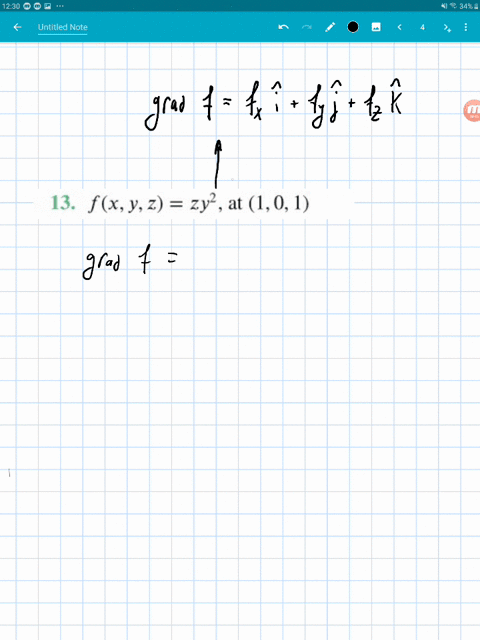 12:30 34%
Untitled Note 4
grad f = fₓ î + f_y ĵ + f_z k̂
13. f(x, y, z) = zy², at (1, 0, 1)
grad f =